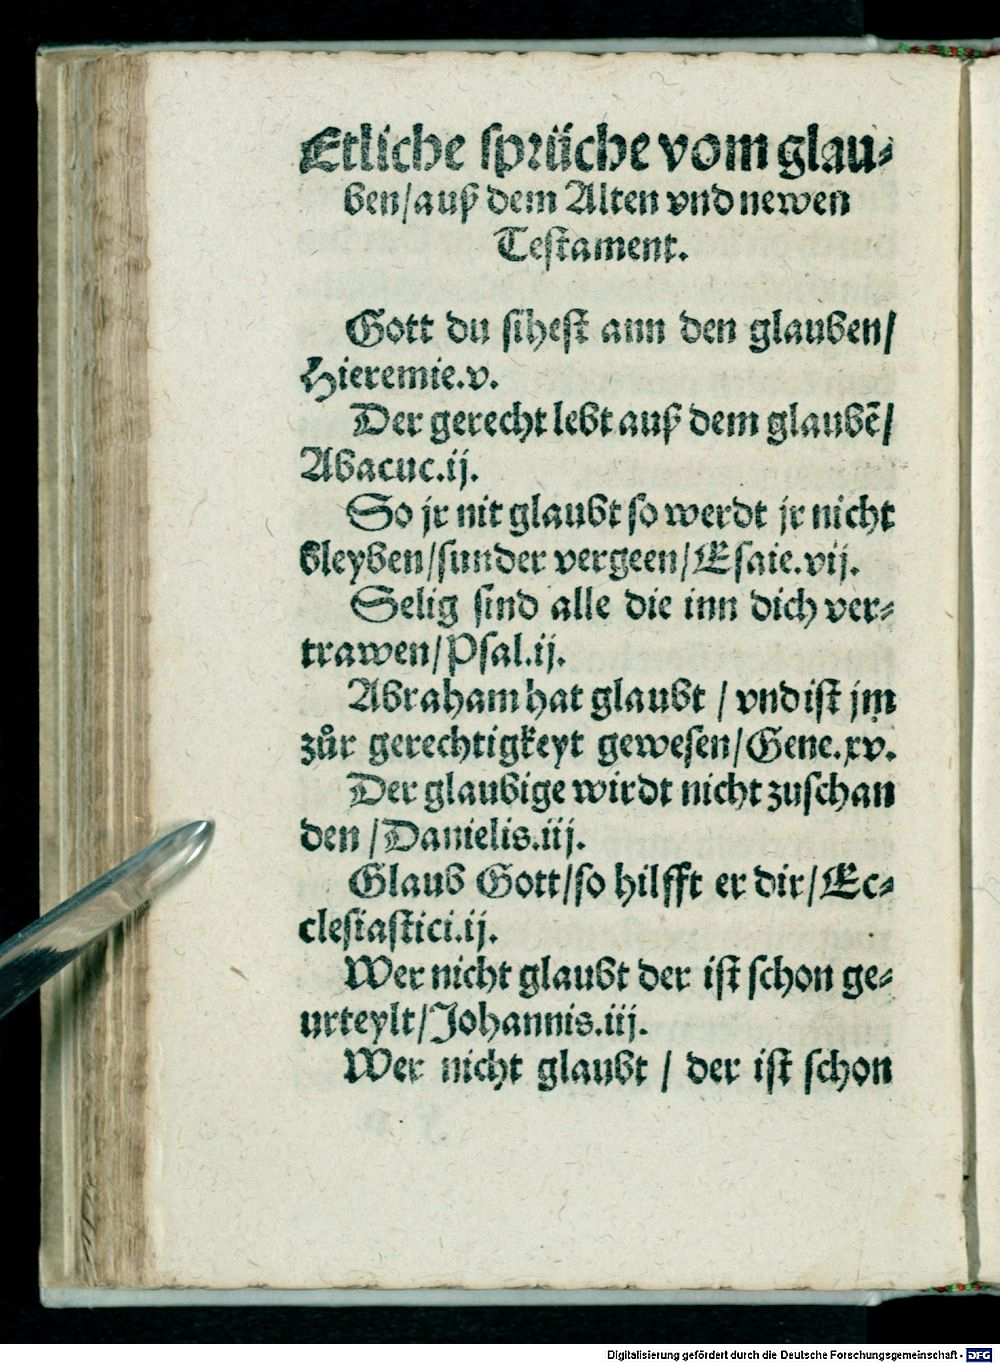 Etliche ſprüche vom glau⸗
ben/auß dem Alten vnd newen
Teſtament.
Gott du ſiheſt ann den glauben/
Hieremie.v.
Der gerecht lebt auß dem glaubẽ/
Abacuc.ij.
So jr nit glaubt ſo werdt jr nicht
bleyben/ſunder vergeen/Eſaie.vij.
Selig ſind alle die inn dich ver⸗
trawen/Pſal.ij.
Abraham hat glaubt / vnd iſt jm
zůr gerechtigkeyt geweſen/Gene.xv.
Der glaubige wirdt nicht zuſchan
den /Danielis.iij.
Glaub Gott/ſo hilfft er dir/Ec⸗
cleſiaſtici.ij.
Wer nicht glaubt der iſt ſchon ge⸗
urteylt/Johannis.iij.
Wer nicht glaubt / der iſt ſchon
Digitalisierung gefördert durch die Deutsche Forschungsgemeinschaft - DFG